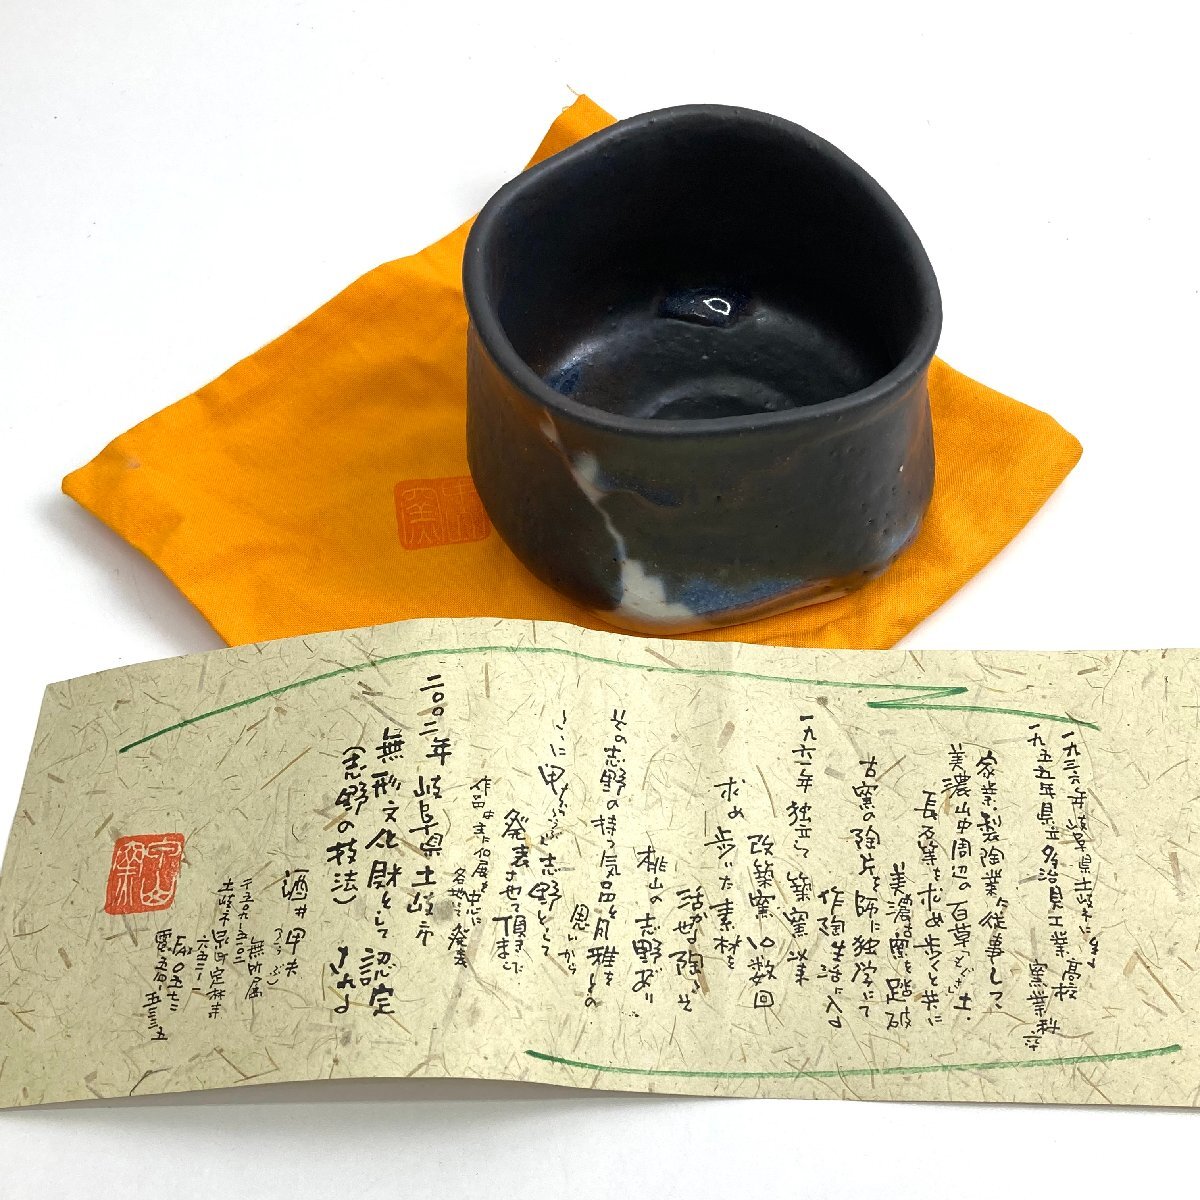 一九三六年岐阜県土岐市に生る
一九五五年県立多治見工業高校
窯業科卒
家業製陶業に従事して
美濃山中周辺の百草（もぐさ）土・
長石等を求め歩くと共に
美濃古窯を踏破
古窯の陶片を師に独学にて
作陶生活に入る
一九六一年独立して築窯以来
改築窯十数回
求め歩いた素材を
活かす陶こそ
桃山の志野あり
その志野の持つ気品と風雅との
思いから
ここに甲夫志野として
発表させて頂きました
作品は主に個展を中心に
各地にて発表
二〇〇二年 岐阜県土岐市
無形文化財として認定
（志野の技法） さる
酒井甲夫
（こうぶ）
無所属
土岐市泉町定林寺
六五二－一
電〇五七二